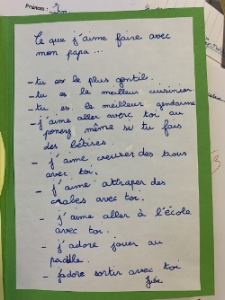 Prénom :
Ce que j'aime faire avec
mon papa...
- tu es le plus gentil.
- tu es le meilleur cuisinier
- tu es le meilleur gendarme
- j'aime aller avec toi au
poney même si tu fais
des bêtises.
- j'aime creuser des trous
avec toi.
- j'aime attraper des
crabes avec toi.
- j'aime aller à l'école
avec toi.
- j'adore jouer au
paddle.
- j'adore sortir avec toi